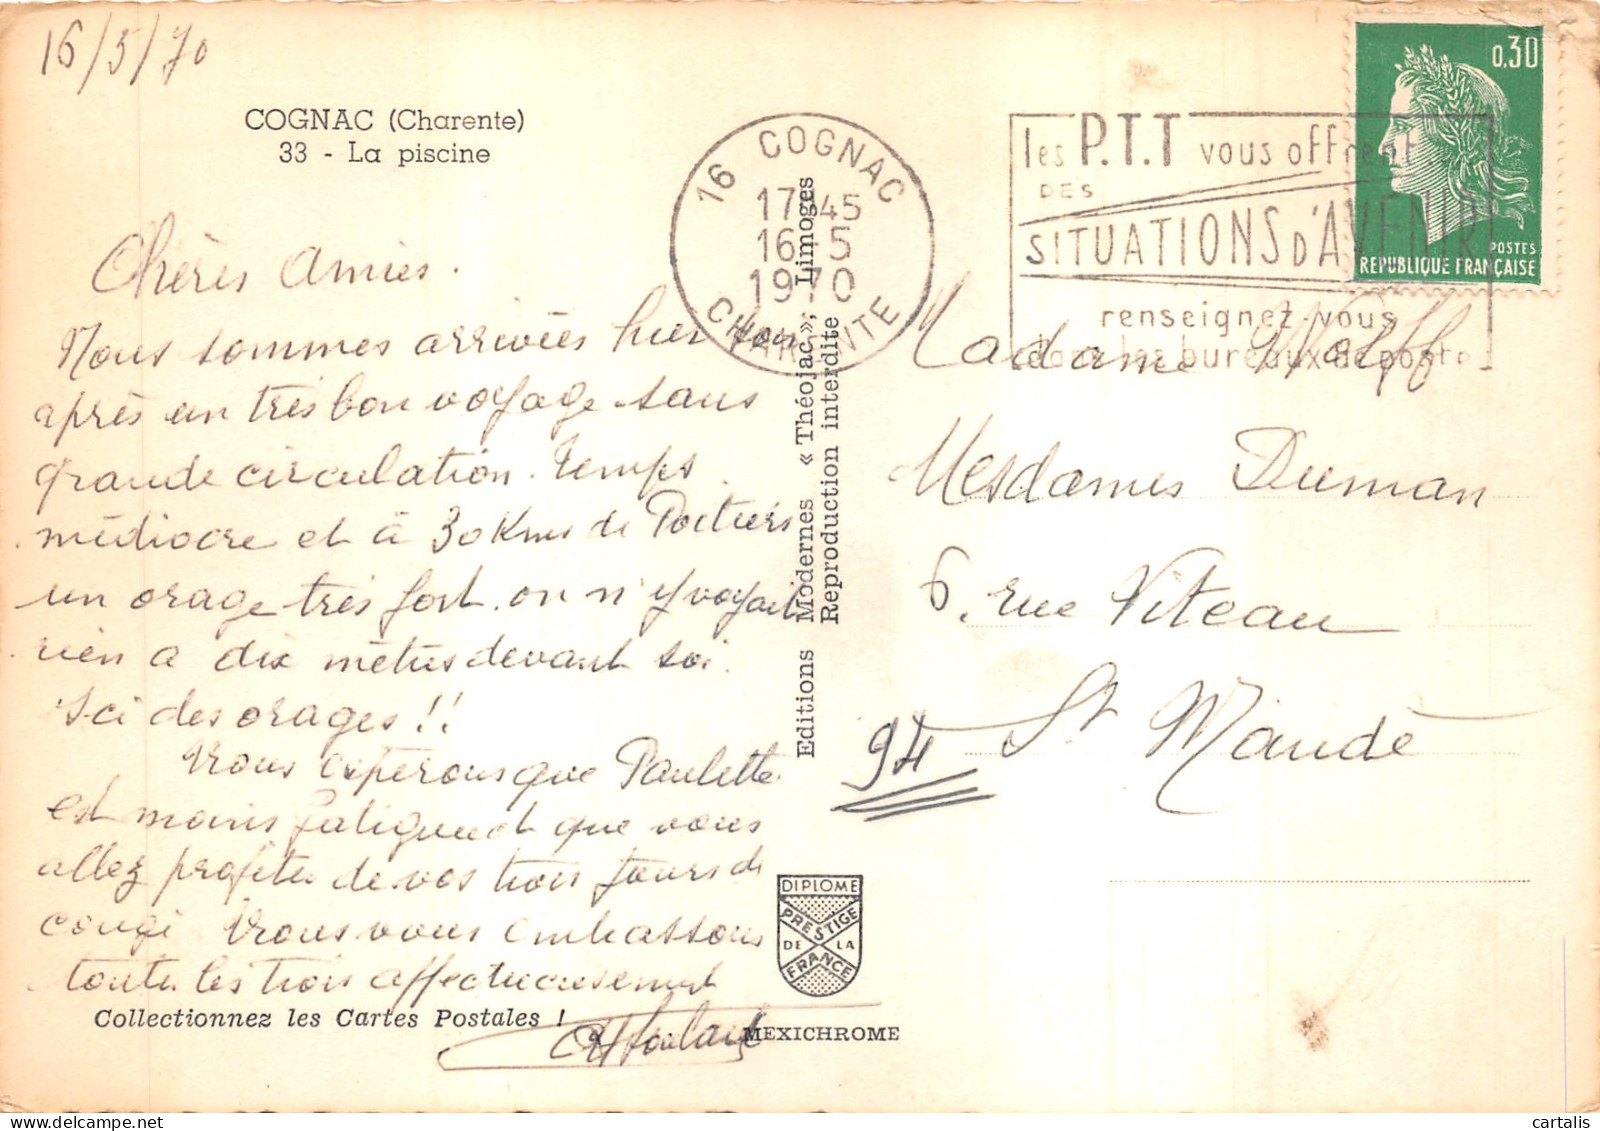 16/5/70
COGNAC (Charente)
33 - La piscine
Chères Amies.
Nous sommes arrivées hier soir
après un très bon voyage sans
grande circulation. Temps
médiocre et à 30 Kms de Poitiers
un orage très fort. on n'y voyait
rien à dix mètres devant soi.
Ici des orages !!
Nous espérons que Paulette
est moins fatiguée et que vous
allez profiter de vos trois jours de
congé Nous vous embrassons
toutes les trois affectueusement
Collectionnez les Cartes Postales !
16 COGNAC
17H45
16-5
1970
CHARENTE
Editions Modernes « Théojac », Limoges
Reproduction interdite
DIPLOME
PRESTIGE
DE LA
FRANCE
MEXICHROME
les P.T.T vous offrent
DES
SITUATIONS D'AVENIR
renseignez-vous
dans les bureaux de poste
0,30
POSTES
REPUBLIQUE FRANÇAISE
Madame Wolff
Mesdames Duman
6, rue Viteau
94 St Mandé
cartalis